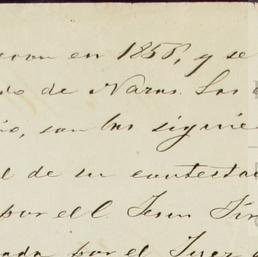 en 1858, y se
do de Naras. Los
son las siguie
l de su contesta
por el C. Juan
ada por el Juez